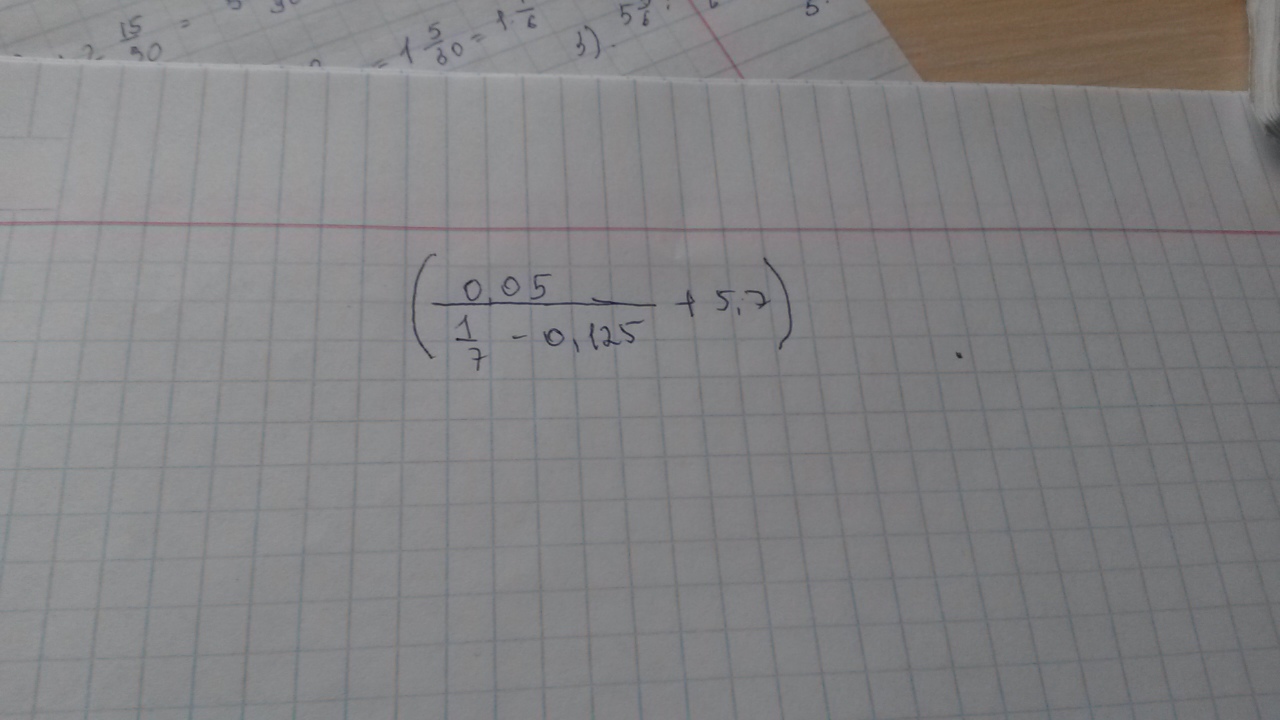 15/90 =
= 1 5/30 = 1 1/6
3).
( 0,05 / (1/7 - 0,125) + 5,7 )